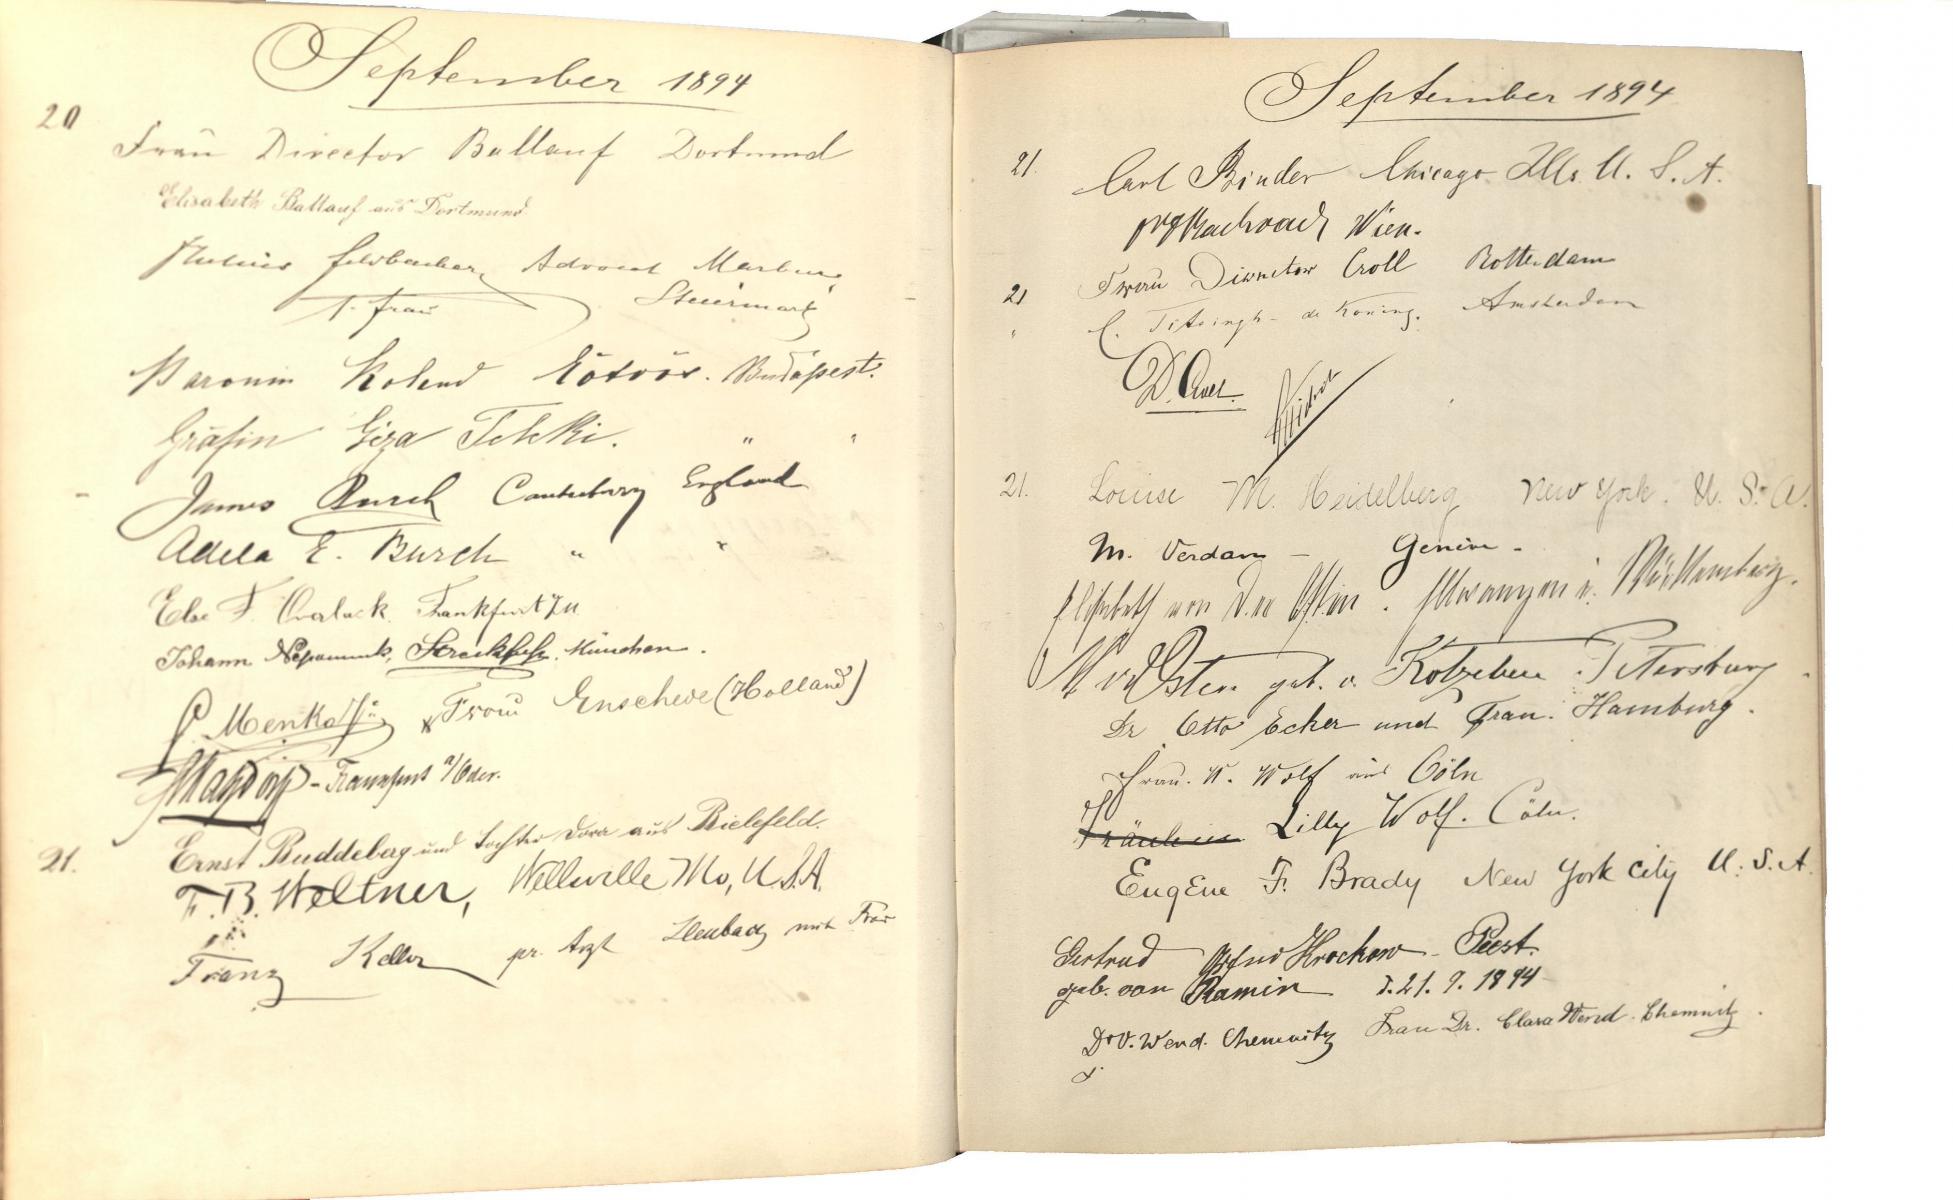 September 1894
20
Frau Director Ballauf Dortmund
Elisabeth Ballauf aus Dortmund.
Advocat Marburg
Frau Steiermark
Baronin Roland Eötvös. Budapest.
Gräfin Géza Teleki. " "
James Burch Canterbury England
Adela E. Burch " "
Else F. Frankfurt
Johann Nepomuk, München.
Menko Frau Enschede (Holland)
Frankfurt a/Oder.
Ernst Buddeberg und Tochter Dora aus Bielefeld.
21. F. B. Weltner, Wellsville Mo, U.S.A.
Franz Keller pr. Arzt mit Frau
September 1894
21. Carl Binder Chicago Ills. U. S. A.
Wien.
21 Frau Director Croll Rotterdam
" C. Titsingh - de Koning. Amsterdam
21. Louise M. Heidelberg New York. U. S. A.
M. Verdam - Genève -
Elisabeth von der Osten. Ellwangen i. Württemberg.
Osten geb. v. Kotzebue. Petersburg.
Dr Otto Ecker und Frau. Hamburg.
Frau. W. Wolf aus Cöln
Fräulein Lilly Wolf. Cöln.
Eugene F. Brady New York City U. S. A.
Gertrud Krockow - Peest.
geb. von Ramin d. 21. 9. 1894
Wend. Chemnitz Frau Dr. Clara Wend. Chemnitz.